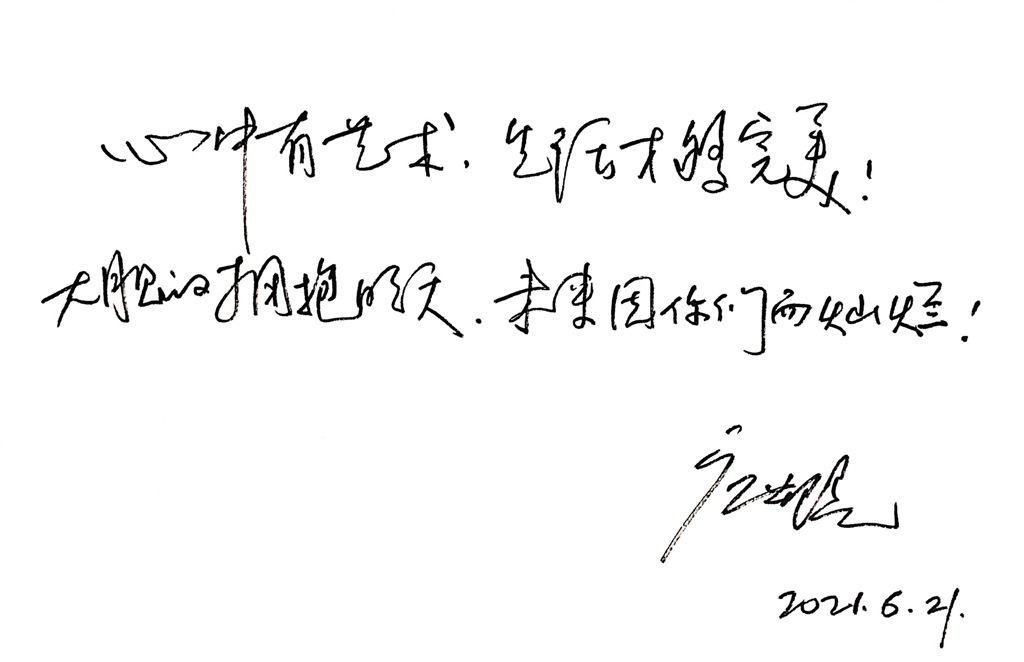 心中有艺术，生活才够完美！
大胆的拥抱明天，未来因你们而灿烂！
2021.6.21.